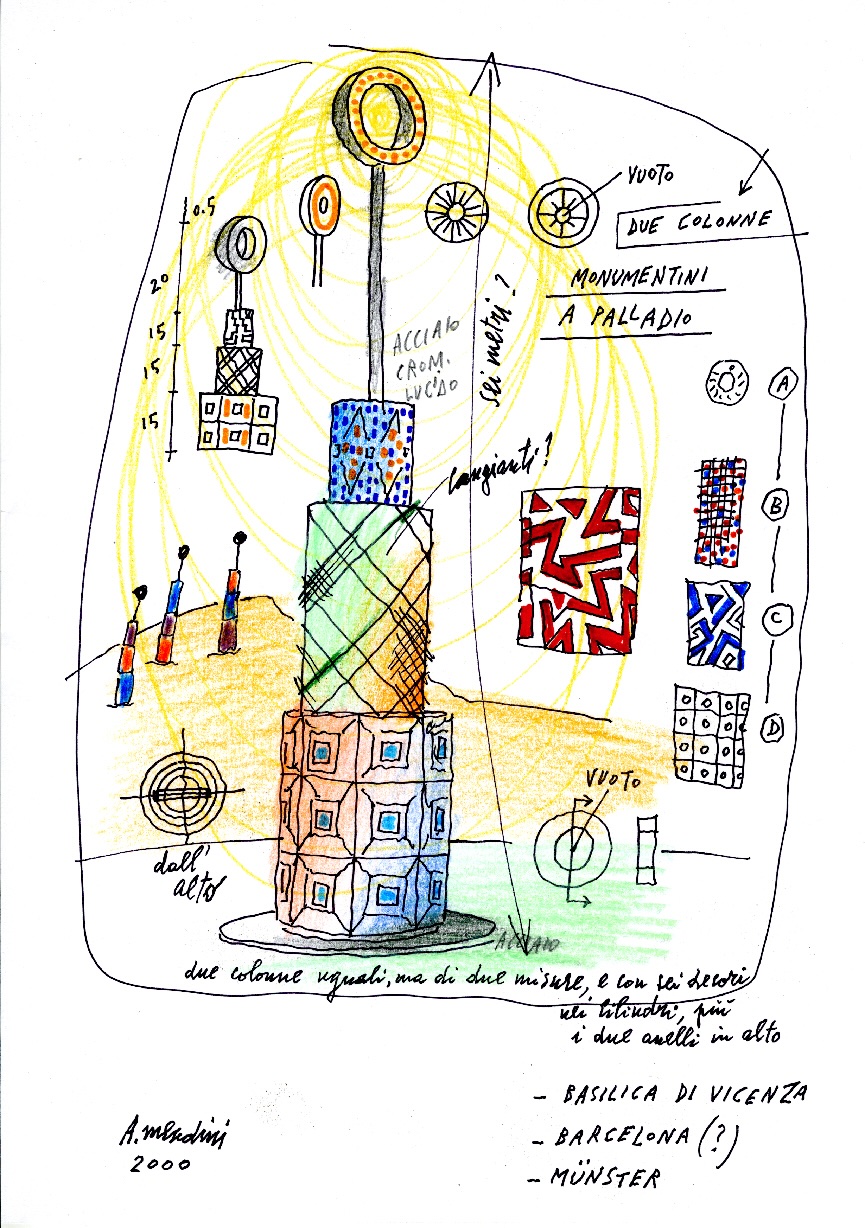 VUOTO
0.5
DUE COLONNE
MONUMENTINI
A PALLADIO
20
15
15
15
sei metri?
ACCIAIO
CROM.
LUCIDO
cangianti?
A
B
C
D
VUOTO
dall'
alto
ACCIAIO
due colonne uguali, ma di due misure, e con sei decori
nei cilindri, più
i due anelli in alto
- BASILICA DI VICENZA
- BARCELONA (?)
- MÜNSTER
A. Mendini
2000